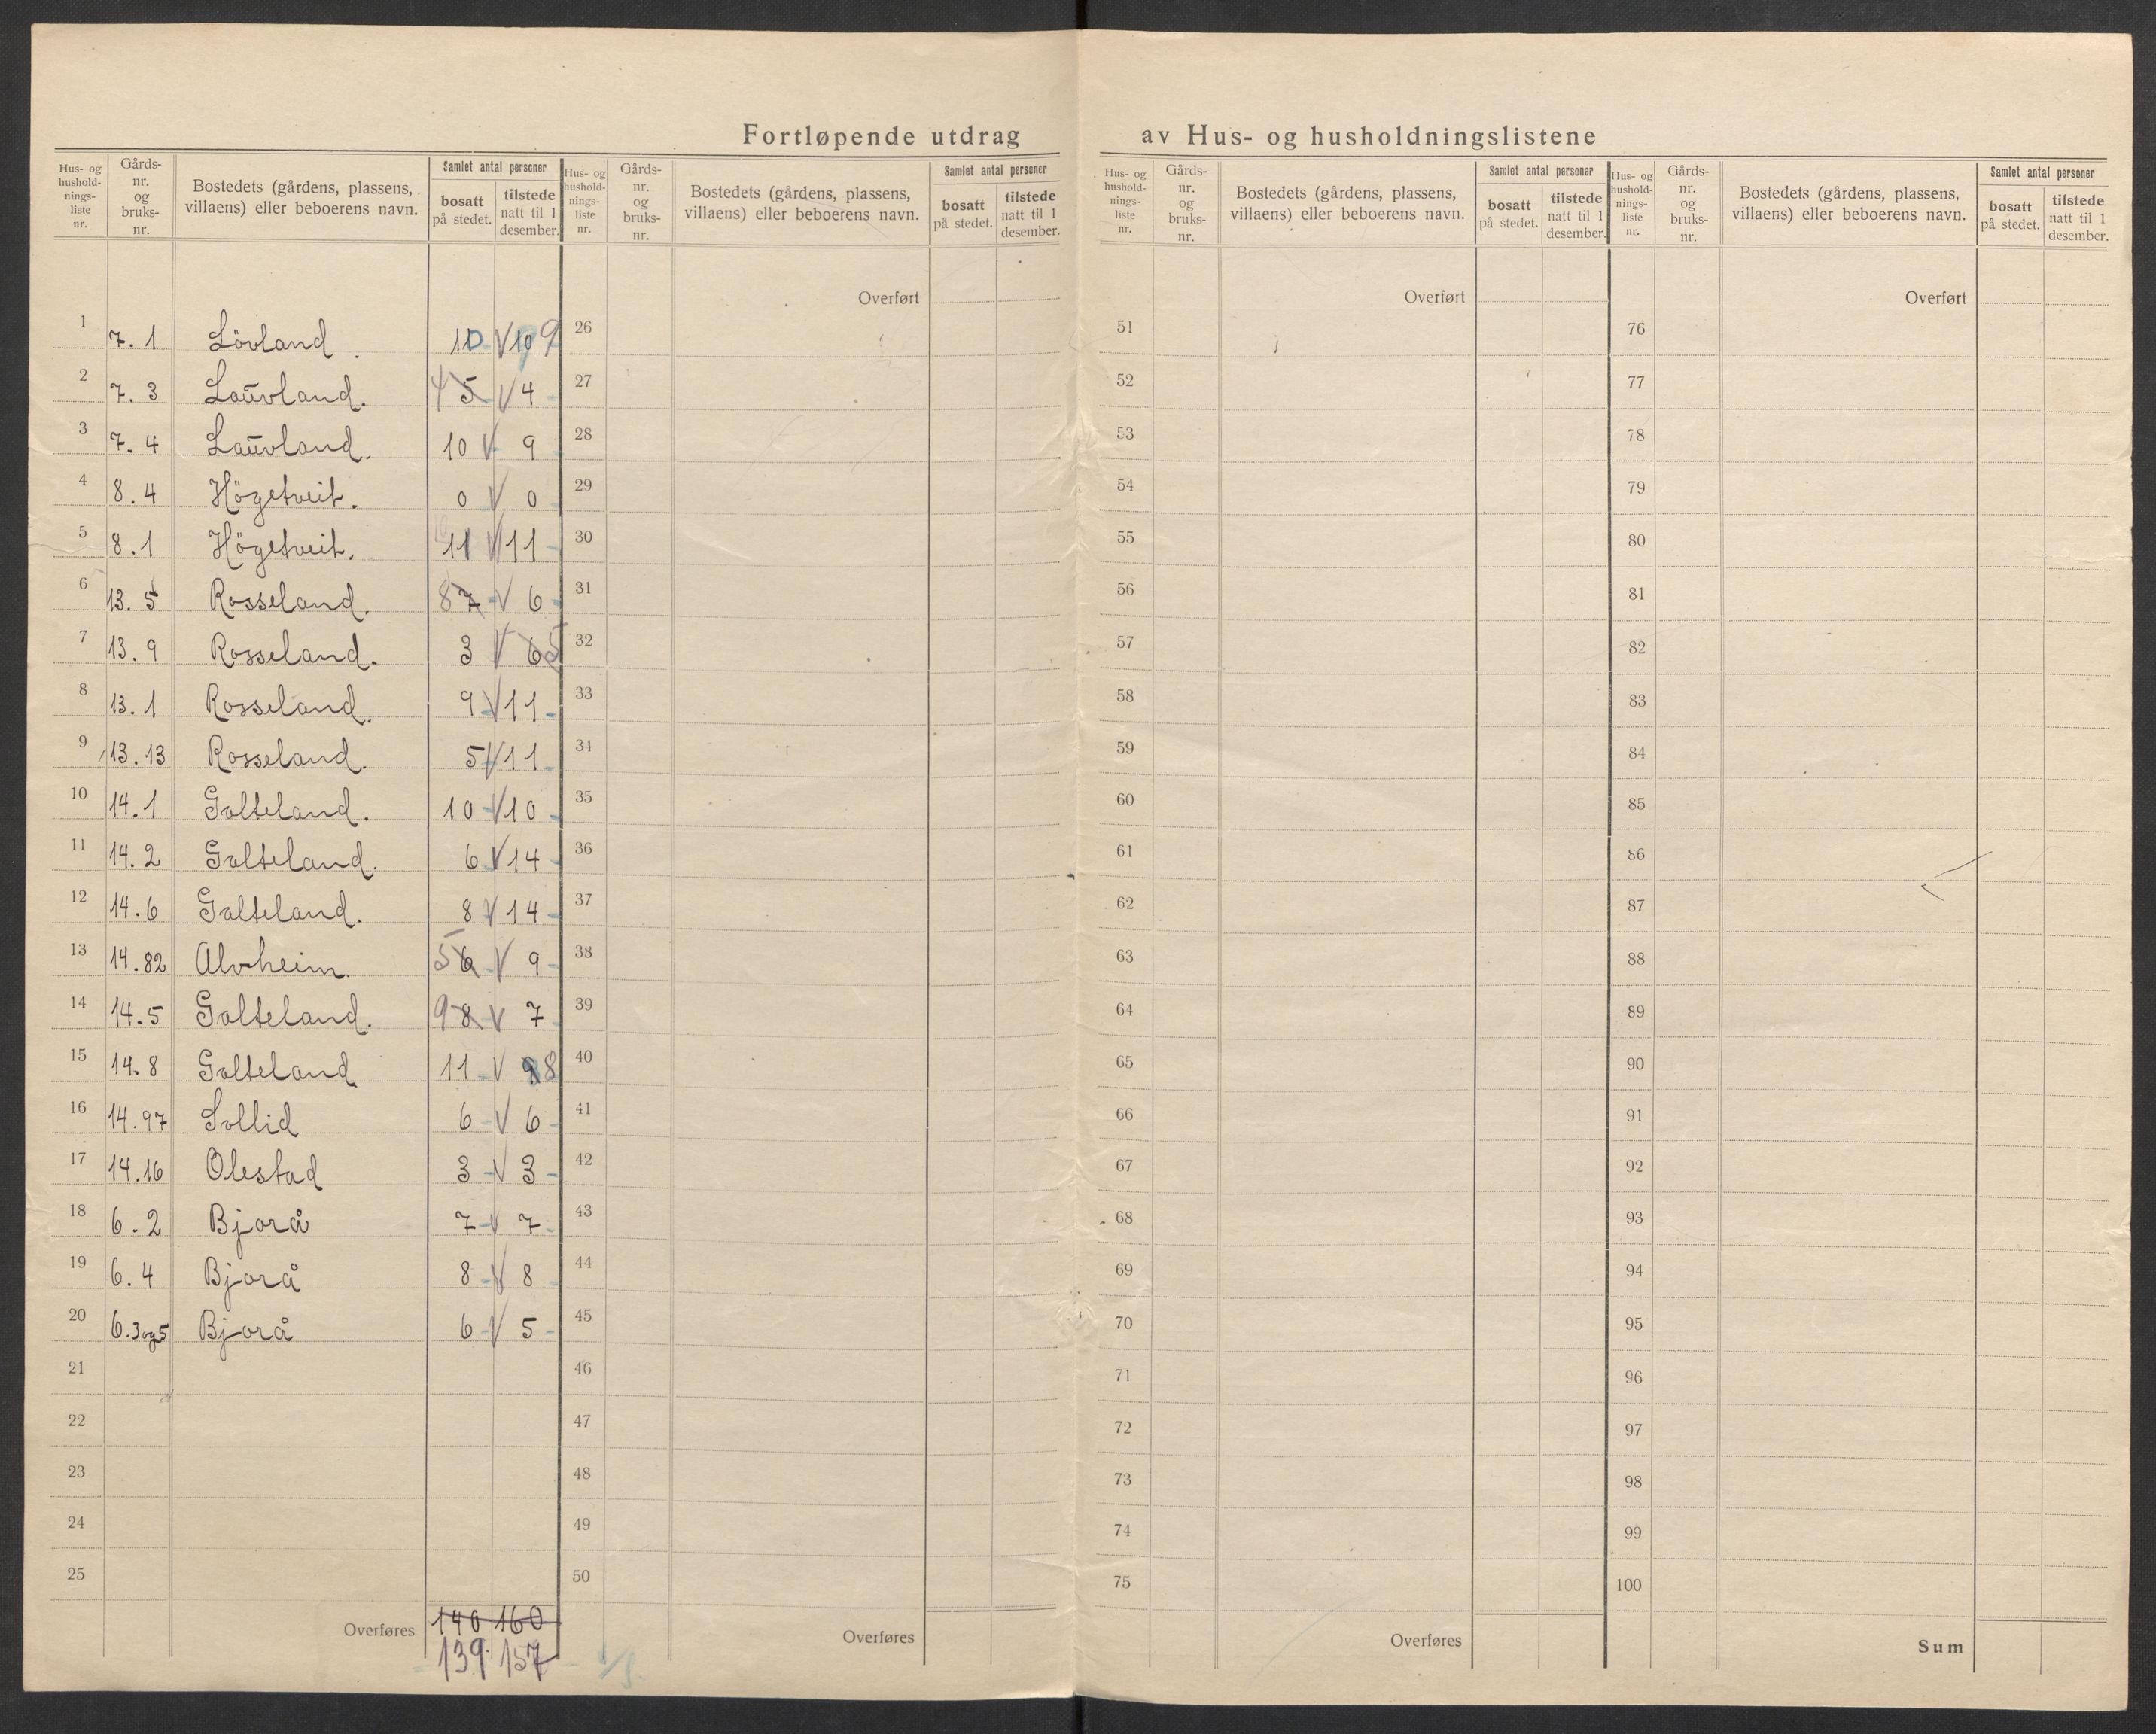 Fortløpende utdrag av Hus- og husholdningslistene
Hus- og hushold-nings-liste nr. Gårds-nr. og bruks-nr. Bostedets (gårdens, plassens, villaens) eller beboerens navn. Samlet antal personer bosatt på stedet. tilstede natt til 1 desember.
1 7. 1 Lövland. 10 V 10 9
2 7. 3 Lauvland. 4 5 V 4
3 7. 4 Lauvland. 10 V 9
4 8. 4 Högetveit. 0 V 0
5 8. 1 Högetveit. 11 V 11
6 13. 5 Rosseland. 8 7 V 6
7 13. 9 Rosseland. 3 V 6 5
8 13. 1 Rosseland. 9 V 11
9 13. 13 Rosseland. 5 V 11
10 14. 1 Galteland. 10 V 10
11 14. 2 Galteland. 6 V 14
12 14. 6 Galteland. 8 V 14
13 14. 82 Alvheim. 5 6 V 9
14 14. 5 Galteland. 9 8 V 7
15 14. 8 Galteland 11 V 9 8
16 14. 97 Sollid 6 V 6
17 14. 16 Olestad 3 V 3
18 6. 2 Bjorå 7 V 7
19 6. 4 Bjorå 8 V 8
20 6. 3 og 5 Bjorå 6 V 5
21
22
23
24
25
Overføres 140 160
139 157
Hus- og hushold-nings-liste nr. Gårds-nr. og bruks-nr. Bostedets (gårdens, plassens, villaens) eller beboerens navn. Samlet antal personer bosatt på stedet. tilstede natt til 1 desember.
Overført
26
27
28
29
30
31
32
33
34
35
36
37
38
39
40
41
42
43
44
45
46
47
48
49
50
Overføres
Hus- og hushold-nings-liste nr. Gårds-nr. og bruks-nr. Bostedets (gårdens, plassens, villaens) eller beboerens navn. Samlet antal personer bosatt på stedet. tilstede natt til 1 desember.
Overført
51
52
53
54
55
56
57
58
59
60
61
62
63
64
65
66
67
68
69
70
71
72
73
74
75
Overføres
Hus- og hushold-nings-liste nr. Gårds-nr. og bruks-nr. Bostedets (gårdens, plassens, villaens) eller beboerens navn. Samlet antal personer bosatt på stedet. tilstede natt til 1 desember.
Overført
76
77
78
79
80
81
82
83
84
85
86
87
88
89
90
91
92
93
94
95
96
97
98
99
100
Sum